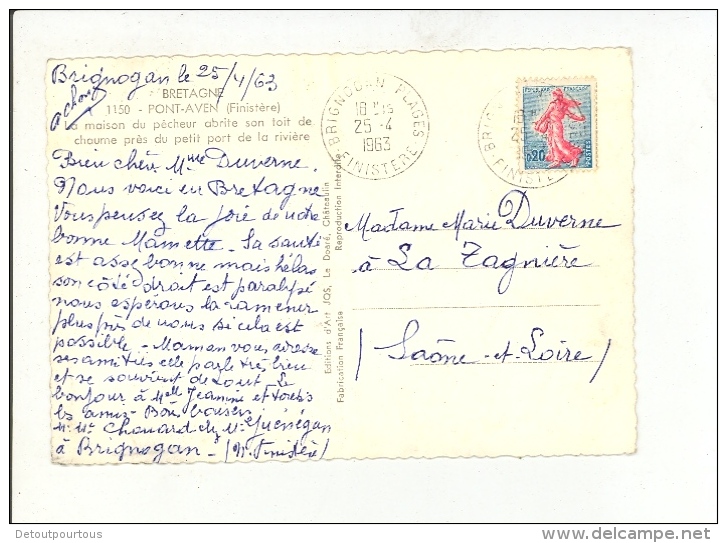 Brignogan le 25/4/63
BRETAGNE
1150 - PONT-AVEN (Finistère)
La maison du pêcheur abrite son toit de
chaume près du petit port de la rivière
Bien chère Mme Duverne.
Nous voici en Bretagne
Vous pensez la joie de notre
bonne Mamette - Sa santé
est assez bonne mais hélas
son côté droit est paralysé
nous espérons la ramener
plus près de nous si cela est
possible - Maman vous adresse
ses amitiés elle parle très bien
et se souvient de tout - Le
bonjour à Melle Jeanine et tous
les amis - Bons baisers
Chouard chez Mme Guénégan
à Brignogan - (N. Finistère)
Editions d'Art JOS, Le Doaré, Châteaulin
Reproduction Interdite
Fabrication Française
BRIGNOGAN PLAGES
16 H15
25-4
1963
FINISTERE
REPUBLIQUE FRANÇAISE
0,20
POSTES
BRIG
FINISTE
Madame Marie Duverne
à La Tagnière
(Saône-et-Loire)
Detoutpourtous
delcampe.net